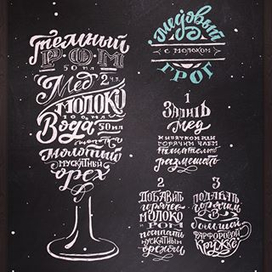 Тёмный
РОМ
50 мл
Мёд 2 ч.л.
МОЛОКО
100 мл
Вода 50 мл
МОЛОТЫЙ
МУСКАТНЫЙ
ОРЕХ
медовый
С МОЛОКОМ
ГРОГ
1
ЗАЛИТЬ
мёд
ГОРЯЧИМ ЧАЕМ
тщательно
размешать
2
ДОБАВИТЬ
горячее
МОЛОКО
и РОМ
посыпать
МУСКАТНЫМ
орехом
3
ПОДАВАТЬ
ГОРЯЧИМ
в
большой
фарфоровой
кружке